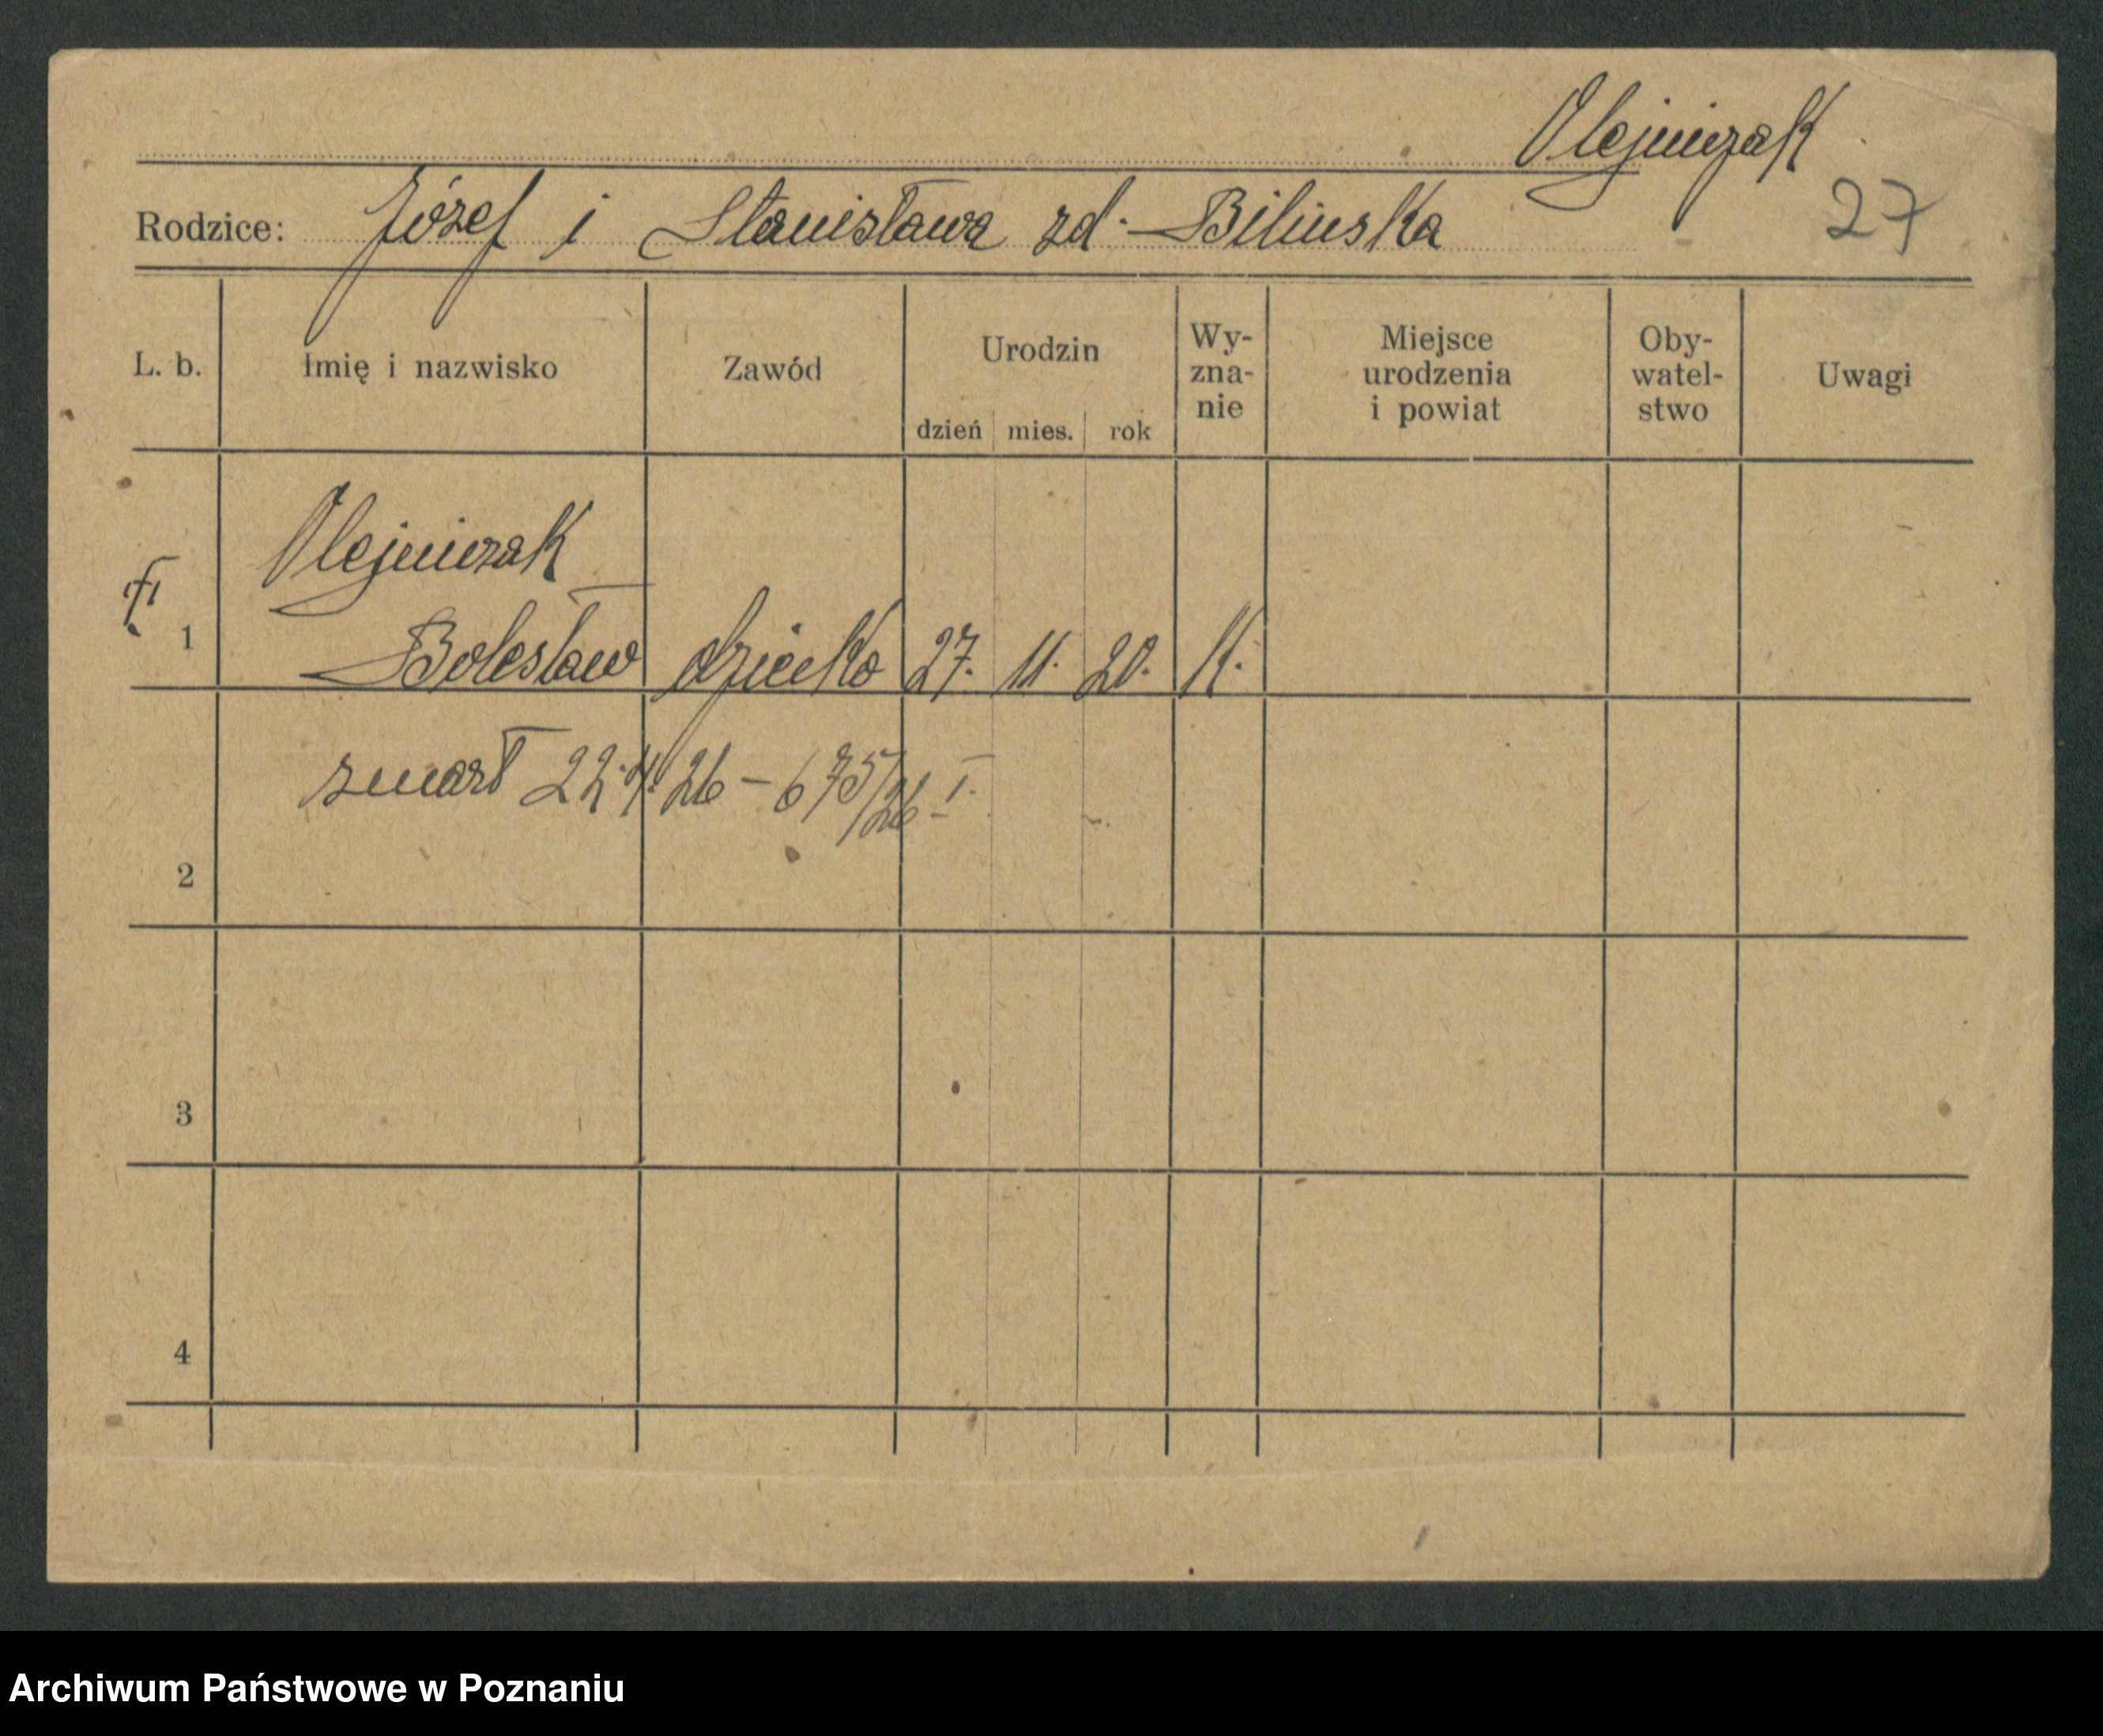 Olejniczak
Rodzice: Józef i Stanisława zd. Bilinska
27
L. b. Imię i nazwisko Zawód Urodzin dzień mies. rok Wy-zna-nie Miejsce urodzenia i powiat Oby-watel-stwo Uwagi
Olejniczak
1 Bolesław dziecko 27. 11. 20. K.
zmarł 22. 4. 26 – 675/26 – I.
2
3
4
Archiwum Państwowe w Poznaniu